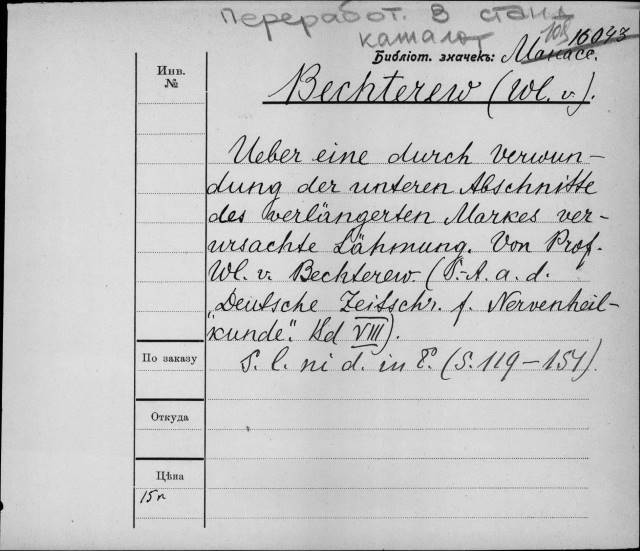 Переработ. в станд
каталог
16043
Библіот. значекъ: Манасе.
Инв.
№
Bechterew (Wl. v.).
Ueber eine durch Verwun-
dung der unteren Abschnitte
des verlängerten Markes ver-
ursachte Lähmung. Von Prof.
Wl. v. Bechterew. (S.-A. a. d.
"Deutsche Zeitschr. f. Nervenheil-
kunde". Bd VIII).
По заказу
S. l. ni d. in 8°. (S. 119-151).
Откуда
Цѣна
15к